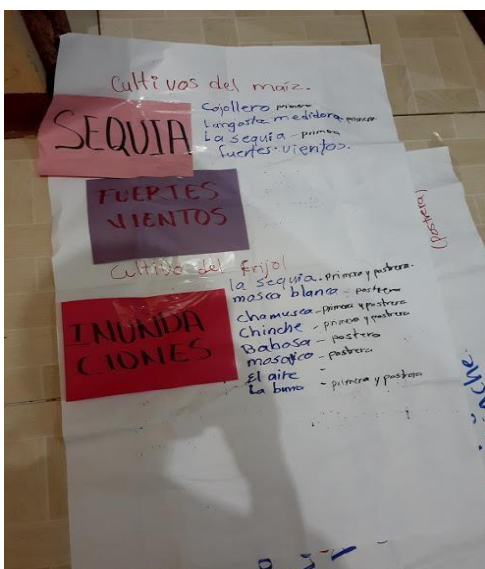 Cultivos del maiz.
SEQUIA
Cojollero primera
Langosta medidora - primera
La sequia - primera
fuertes vientos.
FUERTES
VIENTOS
(postrera)
Cultivo del frijol
la sequia. primera y postrera.
mosca blanca - postrera
chamusca - primera y postrera
Chinche - primera y postrera
Babosa - postrera
mosaico - postrera
El aire -
La bruma - primera y postrera
INUNDA
CIONES